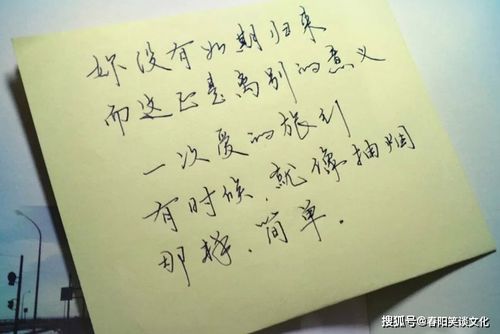 你没有如期归来
而这正是离别的意义
一次爱的旅行
有时候，就像抽烟
那样、简单.
搜狐号@春阳笑谈文化